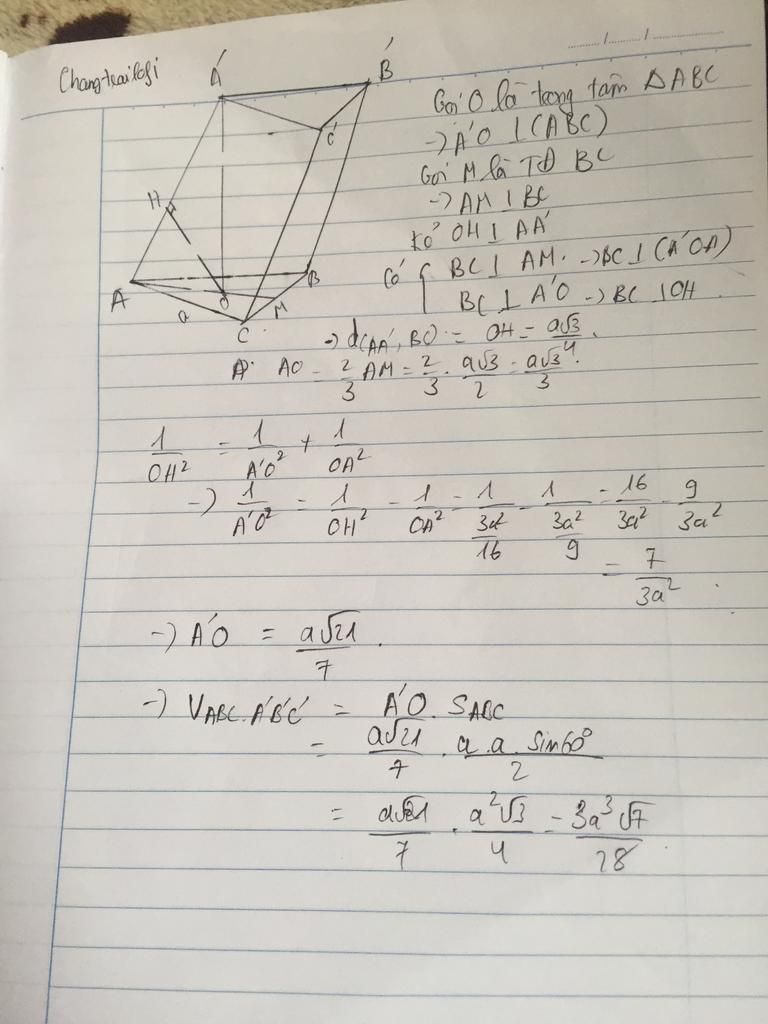 Changtraitofi
A'
B'
C'
H
A
B
O
M
a
C
Gọi O là trọng tâm ΔABC
→ A'O ⊥ (ABC)
Gọi M là TĐ BC
→ AM ⊥ BC
Kẻ OH ⊥ AA'
Có { BC ⊥ AM. → BC ⊥ (A'OA)
BC ⊥ A'O → BC ⊥ OH.
→ d(AA', BC) = OH = a√3/4.
AO = 2/3 AM = 2/3 . a√3/2 = a√3/3.
1/OH² = 1/A'O² + 1/OA²
→ 1/A'O² = 1/OH² - 1/OA² = 1/(3a²/16) - 1/(3a²/9) = 16/3a² - 9/3a²
= 7/3a².
→ A'O = a√21/7.
→ VABC.A'B'C' = A'O . SABC
= a√21/7 . a.a.sin60°/2
= a√21/7 . a²√3/4 = 3a³√7/28